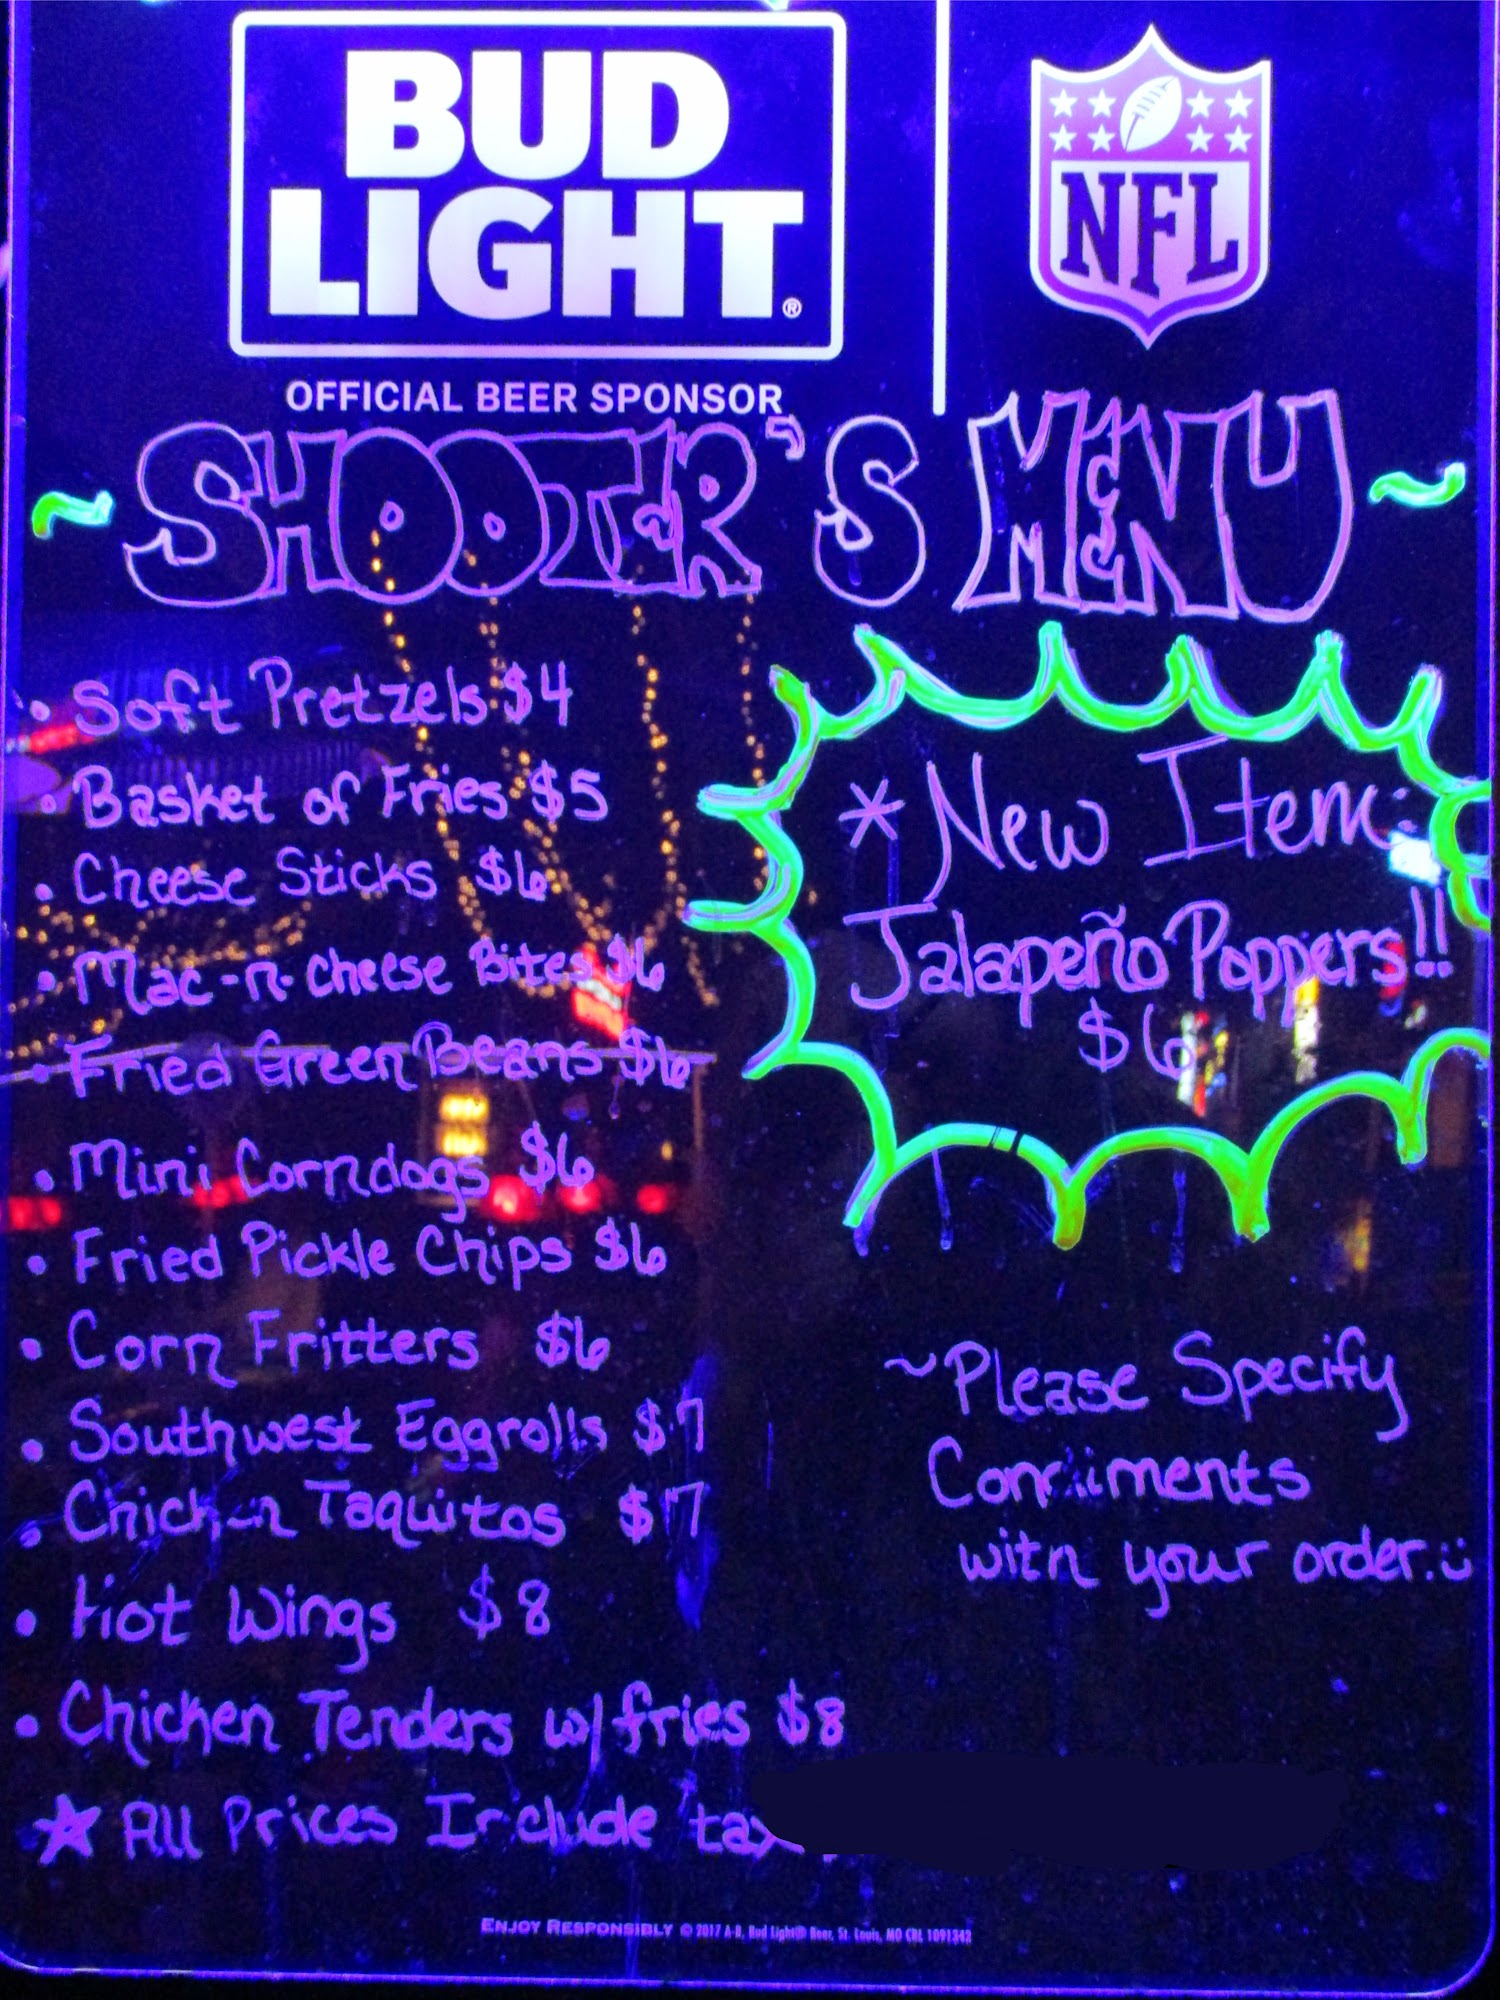 BUD
LIGHT®
OFFICIAL BEER SPONSOR
NFL
~ SHOOTER'S MENU ~
• Soft Pretzels $4
• Basket of Fries $5
• Cheese Sticks $6
• Mac-n-cheese Bites $6
• Fried Green Beans $6
• Mini Corndogs $6
• Fried Pickle Chips $6
• Corn Fritters $6
• Southwest Eggrolls $7
• Chicken Taquitos $7
• Hot Wings $8
• Chicken Tenders w/fries $8
☆ All Prices Include tax
* New Item:
Jalapeño Poppers!!
$6
~Please Specify
Condiments
with your order. :)
ENJOY RESPONSIBLY © 2017 A-B, Bud Light® Beer, St. Louis, MO CBL 1091342